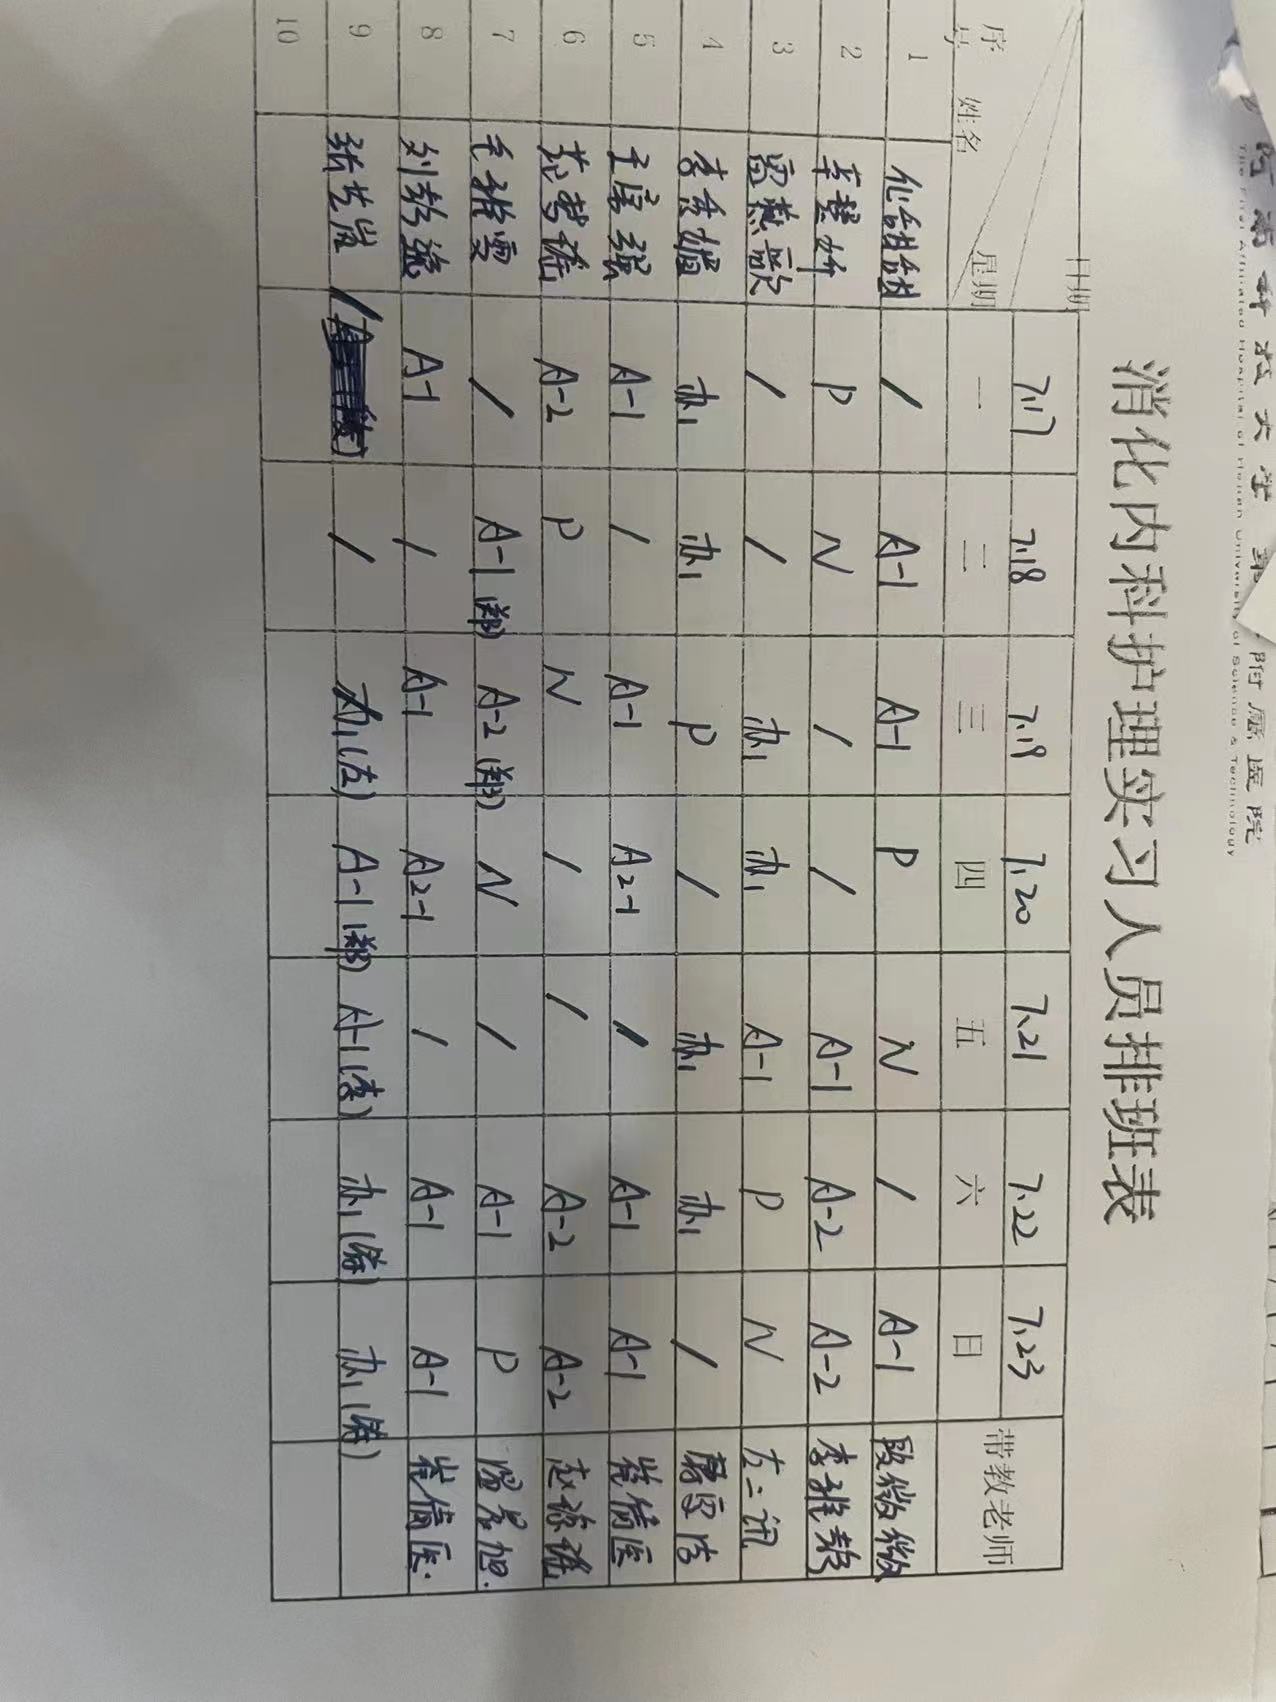 河南科技大学 第一附属医院
The First Affiliated Hospital of Henan University of Science & Technology
消化内科护理实习人员排班表
日期 7.17 7.18 7.19 7.20 7.21 7.22 7.23 带教老师
序号 姓名 星期 一 二 三 四 五 六 日
1 化甜甜 / A-1 A-1 P N / A-1 段微微
2 辛慧妍 P N / / A-1 A-2 A-2 李雅
3 雷燕歌 / / 办1 办1 A-1 P N 左二讯
4 李秀媚 办1 办1 P / 办1 办1 /
5 王康强 A-1 / A-1 A2-1 / A-1 A-1 崔倩医
6 范梦瑶 A-2 P N / / A-2 A-2 赵琼瑶
7 毛雅雯 / A-1(郑) A-2(郑) N / A-1 P 温晨旭.
8 刘逸 A-1 / A-1 A2-1 / A-1 A-1 崔倩医.
9 张艺岚 / / 办1(左) A-1(郑) A-1(李) 办1 办1
10